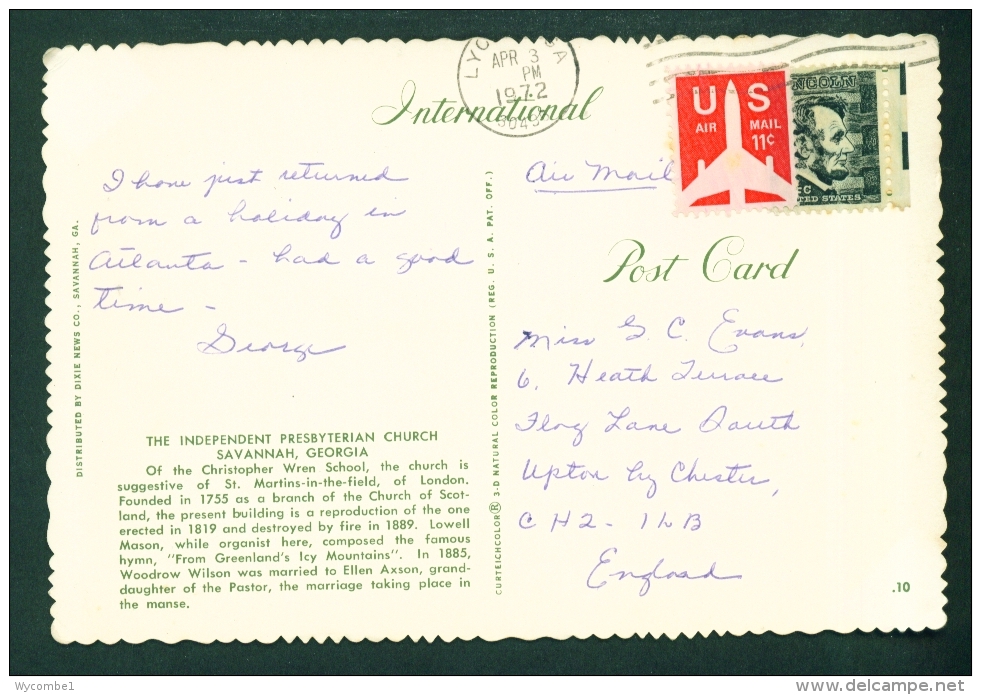 International
LYO GA
APR 3
PM
1972
3049
US
AIR MAIL
11¢
NCOLN
TED STATES
Air Mail
I have just returned
from a holiday in
Atlanta - had a good
time -
George
Post Card
Miss G. C. Evans,
6, Heath Terrace
Flag Lane South
Upton by Chester,
CH2-1LB
England
THE INDEPENDENT PRESBYTERIAN CHURCH
SAVANNAH, GEORGIA
Of the Christopher Wren School, the church is
suggestive of St. Martins-in-the-field, of London.
Founded in 1755 as a branch of the Church of Scot-
land, the present building is a reproduction of the one
erected in 1819 and destroyed by fire in 1889. Lowell
Mason, while organist here, composed the famous
hymn, "From Greenland's Icy Mountains". In 1885,
Woodrow Wilson was married to Ellen Axson, grand-
daughter of the Pastor, the marriage taking place in
the manse.
DISTRIBUTED BY DIXIE NEWS CO., SAVANNAH, GA.
CURTEICHCOLOR® 3-D NATURAL COLOR REPRODUCTION (REG. U. S. A. PAT. OFF.)
.10
Wycombe1